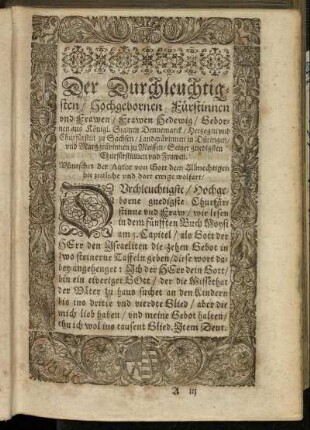 Der Durchleuchtig-
sten / Hochgebornen Fürstinnen
vnd Frawen / Frawen Hedewig / Gebor-
nen aus Königl. Stamm Dennemarck / Hertzogin vnd
Churfürstin zu Sachsen / Landgräwinnen in Düringen /
vnd Marggräwinnen zu Meissen / Seiner gnedigsten
Churfürstinnen vnd Frawen.
Wünschet der Autor von Gott dem Allmechtigen
hie zeitliche vnd dort ewige wolfart /
DVrchleuchtigste / Hochge-
borne gnedigste Churfür-
stinne vnd Fraw / wir lesen
in dem fünfften Buch Moysi
am 5. Capitel / als Gott der
HErr den Israeliten die zehen Gebot in
zwo steinerne Taffeln geben / diese wort da-
bey angehenget : Ich der HErr dein Gott /
bin ein eiveriger GOtt / der die Missethat
der Väter zu haus suchet an den Kindern
bis ins dritte vnd vierdte Glied / aber die
mich lieb haben / vnd meine Gebot halten /
thu ich wol ins tausent Glied. Item Deut.
A iij